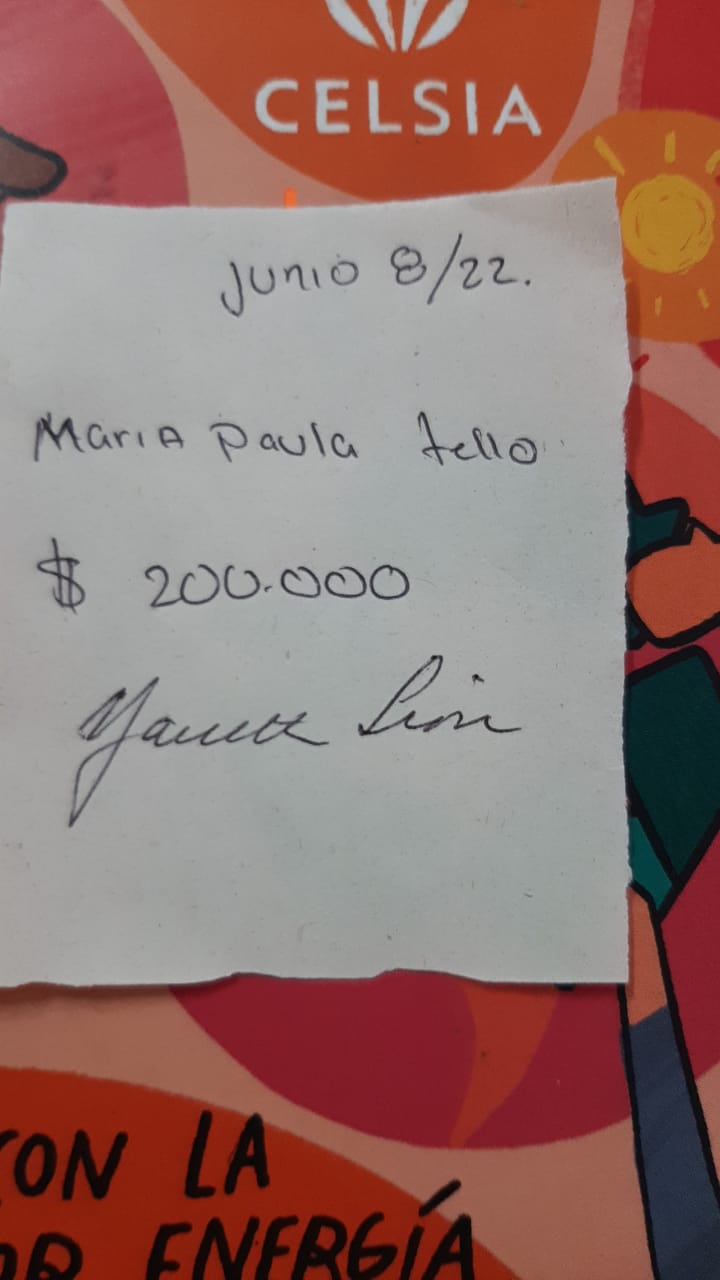 CELSIA
Junio 8/22.
Maria Paula tello
$ 200.000
CON LA
ENERGÍA